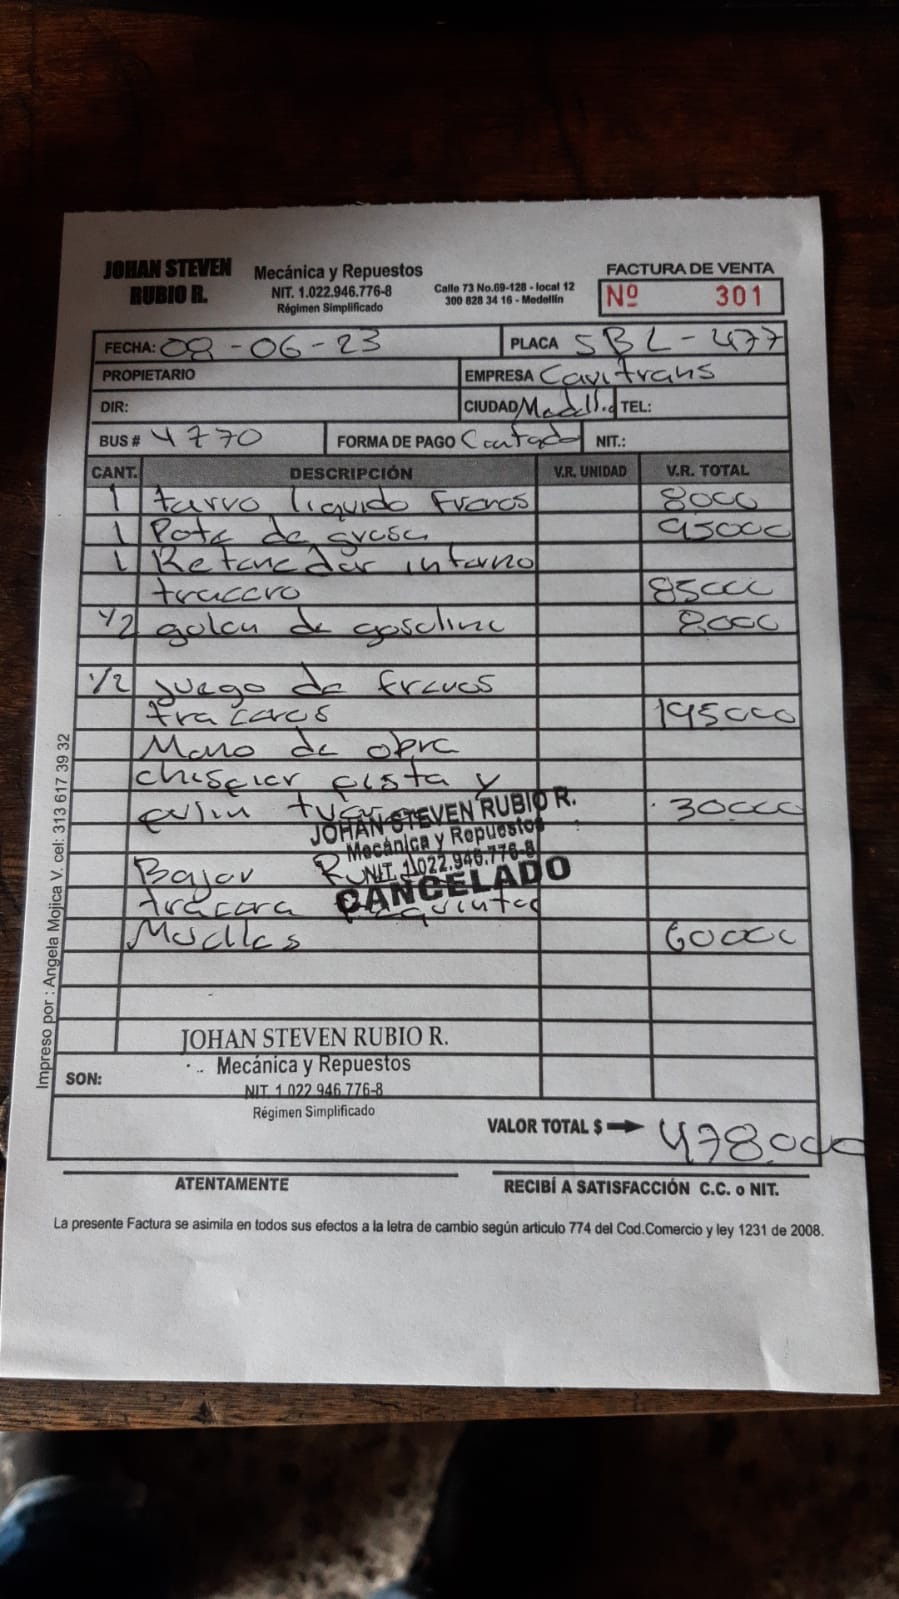 JOHAN STEVEN RUBIO R.
Mecánica y Repuestos
NIT. 1.022.946.776-8
Régimen Simplificado
Calle 73 No.69-128 - local 12
300 828 34 16 - Medellín
FACTURA DE VENTA
Nº 301
FECHA: 08-06-23 PLACA SBL-477
PROPIETARIO EMPRESA Cavitrans
DIR: CIUDAD Medell. TEL:
BUS # 4770 FORMA DE PAGO Contado NIT.:
CANT. DESCRIPCIÓN V.R. UNIDAD V.R. TOTAL
1 tarro liquido Frenos 8000
1 Pote de grasa 95000
1 Retenedor interno
tracero 85000
1/2 galon de gasolina 8000
1/2 juego de frenos
traceros 195000
Mano de obra
y 30.000
Bajar
tracera
Muelles 60000
JOHAN STEVEN RUBIO R.
Mecánica y Repuestos
NIT. 1.022.946.776-8
CANCELADO
JOHAN STEVEN RUBIO R.
Mecánica y Repuestos
SON:
NIT. 1.022.946.776-8
Régimen Simplificado
VALOR TOTAL $ 478.000
ATENTAMENTE RECIBÍ A SATISFACCIÓN C.C. o NIT.
La presente Factura se asimila en todos sus efectos a la letra de cambio según articulo 774 del Cod.Comercio y ley 1231 de 2008.
Impreso por : Angela Mojica V. cel: 313 617 39 32